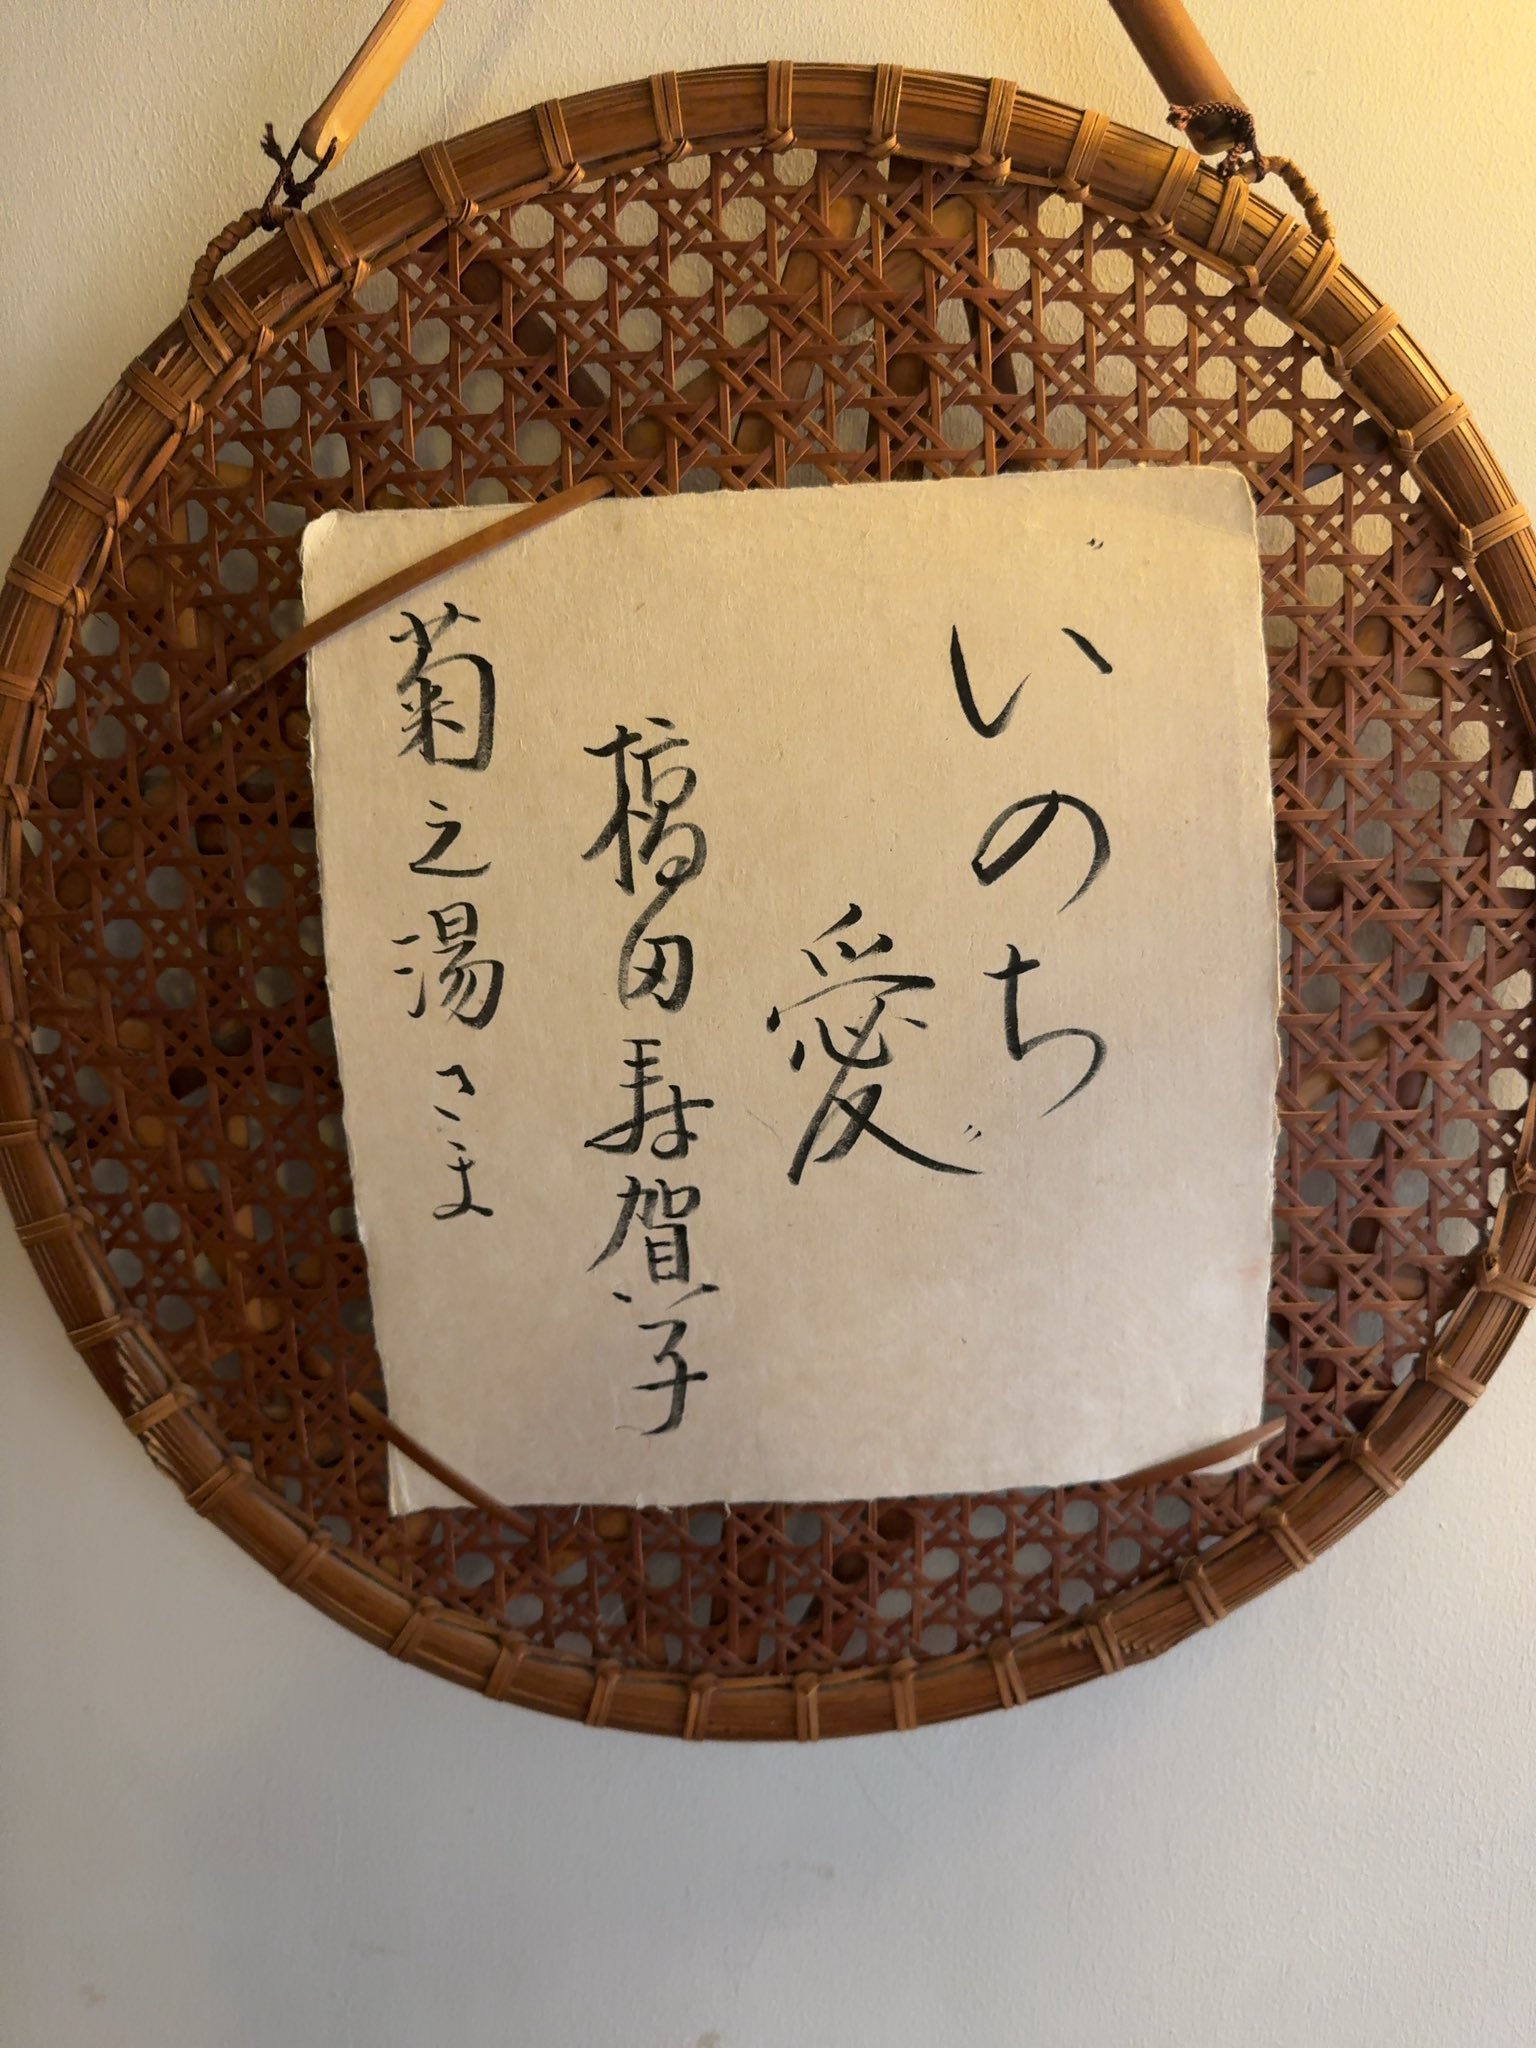 いのち
愛
橋田壽賀子
菊之湯さま